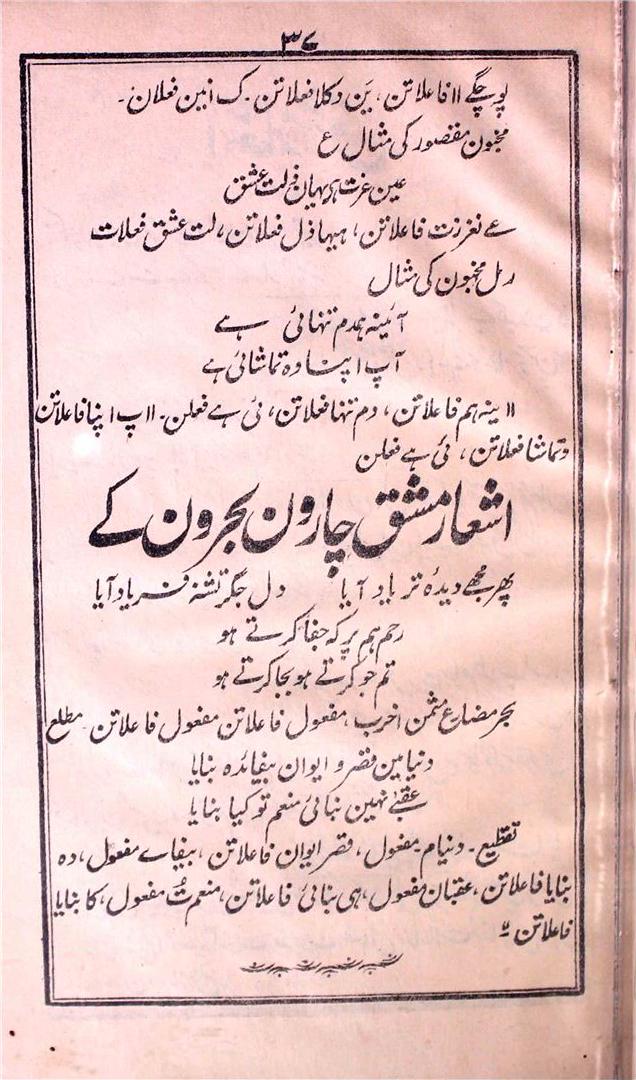 ۳۷
پوچگے اا فاعلاتن، یَن دکلا فعلاتن۔ ک امین فعلان۔
مخبون مقصور کی مثال ع
عین عزت ہے یہان ذلت عشق
عے نعززت فاعلاتن، ہیہا ذل فعلاتن، لت عشق فعلات
رمل مخبون کی مثال
آئینہ ہمدم تنہائی ہے
آپ اپنا وہ تماشائی ہے
اا ینہ ہم فاعلاتن، دم تنہا فعلاتن، ئی ہے فعلن۔ ااپ اپنا فاعلاتن
وتماشا فعلاتن، ئی ہے فعلن
اشعار مشق چارون بحرون کے
پھر مجھے دیدۂ تر یاد آیا دل جگر تشنہ فریاد آیا
رحم ہم پر کہ جفا کرتے ہو
تم جو کرتے ہو بجا کرتے ہو
بحر مضارع مثمن اخرب، مفعول فاعلاتن مفعول فاعلاتن۔ مطلع
دنیا مین قصر و ایوان بیفائدہ بنایا
عقبےٰ نہین بنائی منعم تو کیا بنایا
تقطیع۔ دنیام۔ مفعول، قصر ایوان فاعلاتن، بیفاے مفعول، دہ
بنایا فاعلاتن، عقبان مفعول، ہی بنائی فاعلاتن، منعم تُ مفعول، کا بنایا
فاعلاتن